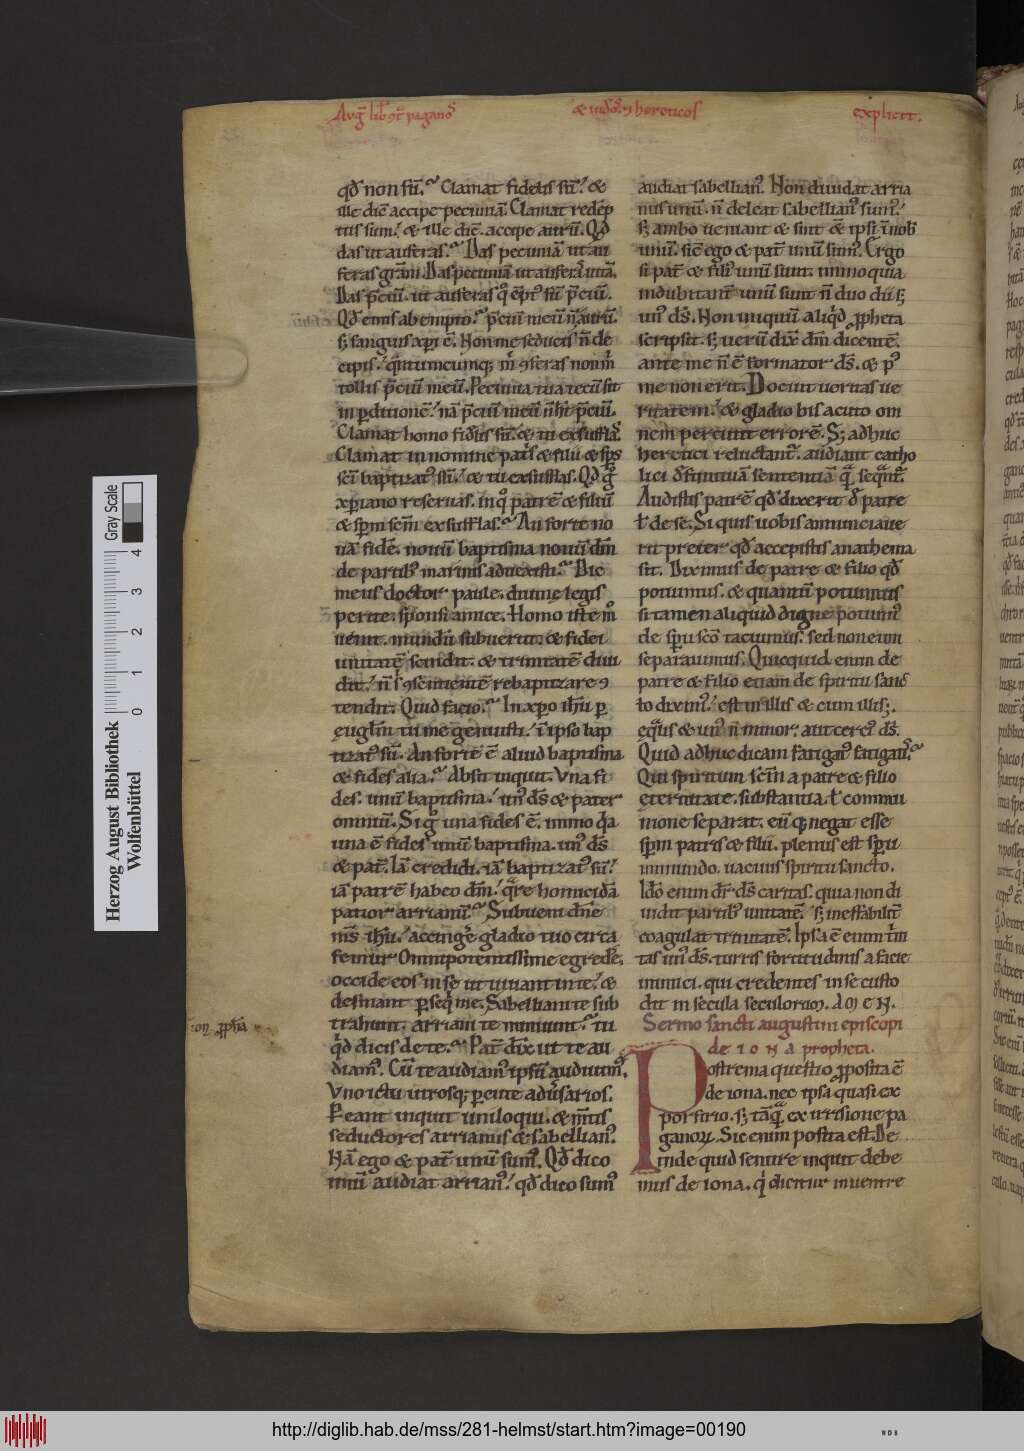 Aug̅ lib̅ ꝯt̅ paganoꝰ & iudeoꝰ ⁊ hereticos explicit.
qd̅ non su̅. Clamat fidelis su̅. &
ille dic̅ accipe pecunia̅. Clamat rede̅p
tus sum. & ille dic̅. accipe auru̅. Qd̅
das ut auferas. Das pecunia̅ ut au
feras gra̅m. Das pecunia̅ ut aufera̅ uita̅.
Das p̅ciu̅. ut auferas
Qd̅ emis ab empto. p̅ciu̅ meu̅ n̅ auru̅.
sꝫ sanguis xp̅i e̅. Non me seducis n̅ de
cipis. m̅ ꝯferas non m̅
tollis p̅ciu̅ meu̅. Pecunia tua tecu̅ sit
in ꝑditione̅. na̅ p̅ciu̅ meu̅ n̅ h̅t p̅ciu̅.
Clamat homo fidelis su̅. & tu exsufflas.
Clamat in nomine pat̅s & filii & sp̅s
sc̅i baptizatꝰ su̅. & tu exsufflas. Qd̅ g̊
xp̅iano reseruas. in qͦ patre̅ & filiu̅
& sp̅m sc̅m exsufflas. An forte no
ua̅ fide̅. nouu̅ baptisma nouu̅ dm̅
de partibꝰ marinis aduexisti. Dic
meus doctor paule. diuine legis
perite. sponsi amice. Homo iste m̊
uenit. mundu̅ subuertit. & fidei
unitate̅ scindit. & trinitate̅ diui
dit. n̅ ꝯsentiente̅ rebaptizare ꝯ
tendit. Quid facio. In xp̅o ih̅u ꝑ
eugl̅m tu me genuisti. i̅ ipso bap
tizatꝰ su̅. An forte e̅ aliud baptisma
& fides alia. Absit inquit. Vna fi
des. unu̅ baptisma. unꝰ ds̅ & pater
omniu̅. Si gͦ una fides e̅. immo qa
una e̅ fides unu̅ baptisma. unꝰ ds̅
& pat̅. Ia̅ credidi. ia̅ baptizatꝰ su̅.
ia̅ patre̅ habeo dm̅. qͣre homicida̅
patior arrianu̅. Subueni dn̅e
m̅s ih̅u. accing̅e gladio tuo circa
femur omnipotentissime egrede̅.
occide eos in se ut uiuant in te. &
desinant ꝑseq̅ me. Sabelliani te sub
trahunt. arriani te minuunt. tu
qͥd dicis de te. Pat̅ dix̅ ut te au
diamꝰ. Cu̅ te audiamꝰ ipsu̅ auditum̅.
Vno ictu utrosqꝫ ꝑcute adu̅sarios.
Pereant inquit uniloqui. & m̅tis
seductores arrianus & sabellianꝰ.
Na̅ ego & pat̅ unu̅ sumꝰ. Qd̅ dico
unu̅ audiat arrianꝰ. qd̅ dico sumꝰ
audiat sabellianꝰ. Non diuidat arria
nus unu̅. n̅ deleat sabellianꝰ sumꝰ.
sꝫ ambo ueniant & sint & ipsi i̅ nob̅
unu̅. sic̅ ego & pat̅ unu̅ sumꝰ. Ergo
si pat̅ & filiꝰ unu̅ sunt. immo quia
indubitant̅ unu̅ sunt n̅ duo dii sꝫ
unꝰ ds̅. Non iniquu̅ aliqͥd ꝓpheta
scripsit. sꝫ ueru̅ dix̅ dm̅ dicente̅.
ante me n̅ e̅ formator ds̅. & pꝰ
me non erit. Docuit ueritas ue
ritatem. & gladio bis acuto om
nem percutit errore̅. Sꝫ adhuc
heretici reluctant̅. audiant catho
lici diffinitiua̅ sententia̅ q̅ seqͣnt̅.
Audistis patre̅ qd̅ dixerit d̅ patre
ł de se. Si quis uobis annunciaue
rit preter qd̅ accepistis anathema
sit. Diximus de patre & filio qd̅
potuimus. & quantu̅ potuimus
si tamen aliquid digne potuimꝰ
de sp̅u sc̅o tacuimus. sed non eum
separauimus. Quicquid enim de
patre & filio etiam de spiritu sanc
to diximꝰ. est in illis & cum illis.
eq̅lis & unꝰ n̅ minor. aut cer̅ ds̅.
Quid adhuc dicam fatigatꝰ fatigatis.
Qui spiritum sc̅m a patre & filio
eternitate. substantia ł commu
nione separat. eu̅ qꝫ negat esse
sp̅m patris & filii. plenus est sp̅u
immundo. uacuus spiritu sancto.
Ideo enim dr̅ ds̅ caritas. quia non di
uidit partibꝰ unitate̅. sꝫ ineffabilit̅
coagulat trinitate̅. Ipsa e̅ enim
tas unꝰ ds̅. turris fortitudinis a facie
inimici. qui credentes in se custo
dit in secula seculorum. AMEN.
Sermo sancti augustini episcopi
de IONA propheta.
Postrema questio ꝓposita e̅
de iona. nec ipsa quasi ex
porfirio. sꝫ ta̅qͣ ex irrisione pa
ganorꝝ. Sic enim posita est. De
inde quid sentire inquit debe
mus de iona. qͥ dicitur in uentre
Herzog August Bibliothek
Wolfenbüttel
0 1 2 3 4
Gray Scale
http://diglib.hab.de/mss/281-helmst/start.htm?image=00190
WDB